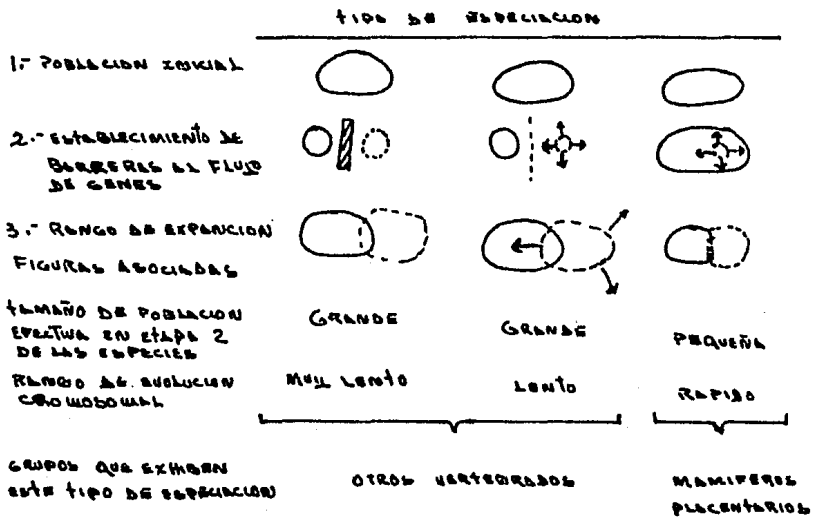 TIPO DE ESPECIACION
1.- POBLACION INICIAL
2.- ESTABLECIMIENTO DE
BARRERAS AL FLUJO
DE GENES
3.- RANGO DE EXPANCION
FIGURAS ASOCIADAS
TAMAÑO DE POBLACION
EFECTIVA EN ETAPA 2
DE LAS ESPECIES
GRANDE
GRANDE
PEQUEÑA
RANGO DE EVOLUCION
CROMOSOMAL
MUY LENTO
LENTO
RAPIDO
GRUPOS QUE EXHIBEN
ESTE TIPO DE ESPECIACION
OTROS VERTEBRADOS
MAMIFEROS
PLACENTARIOS